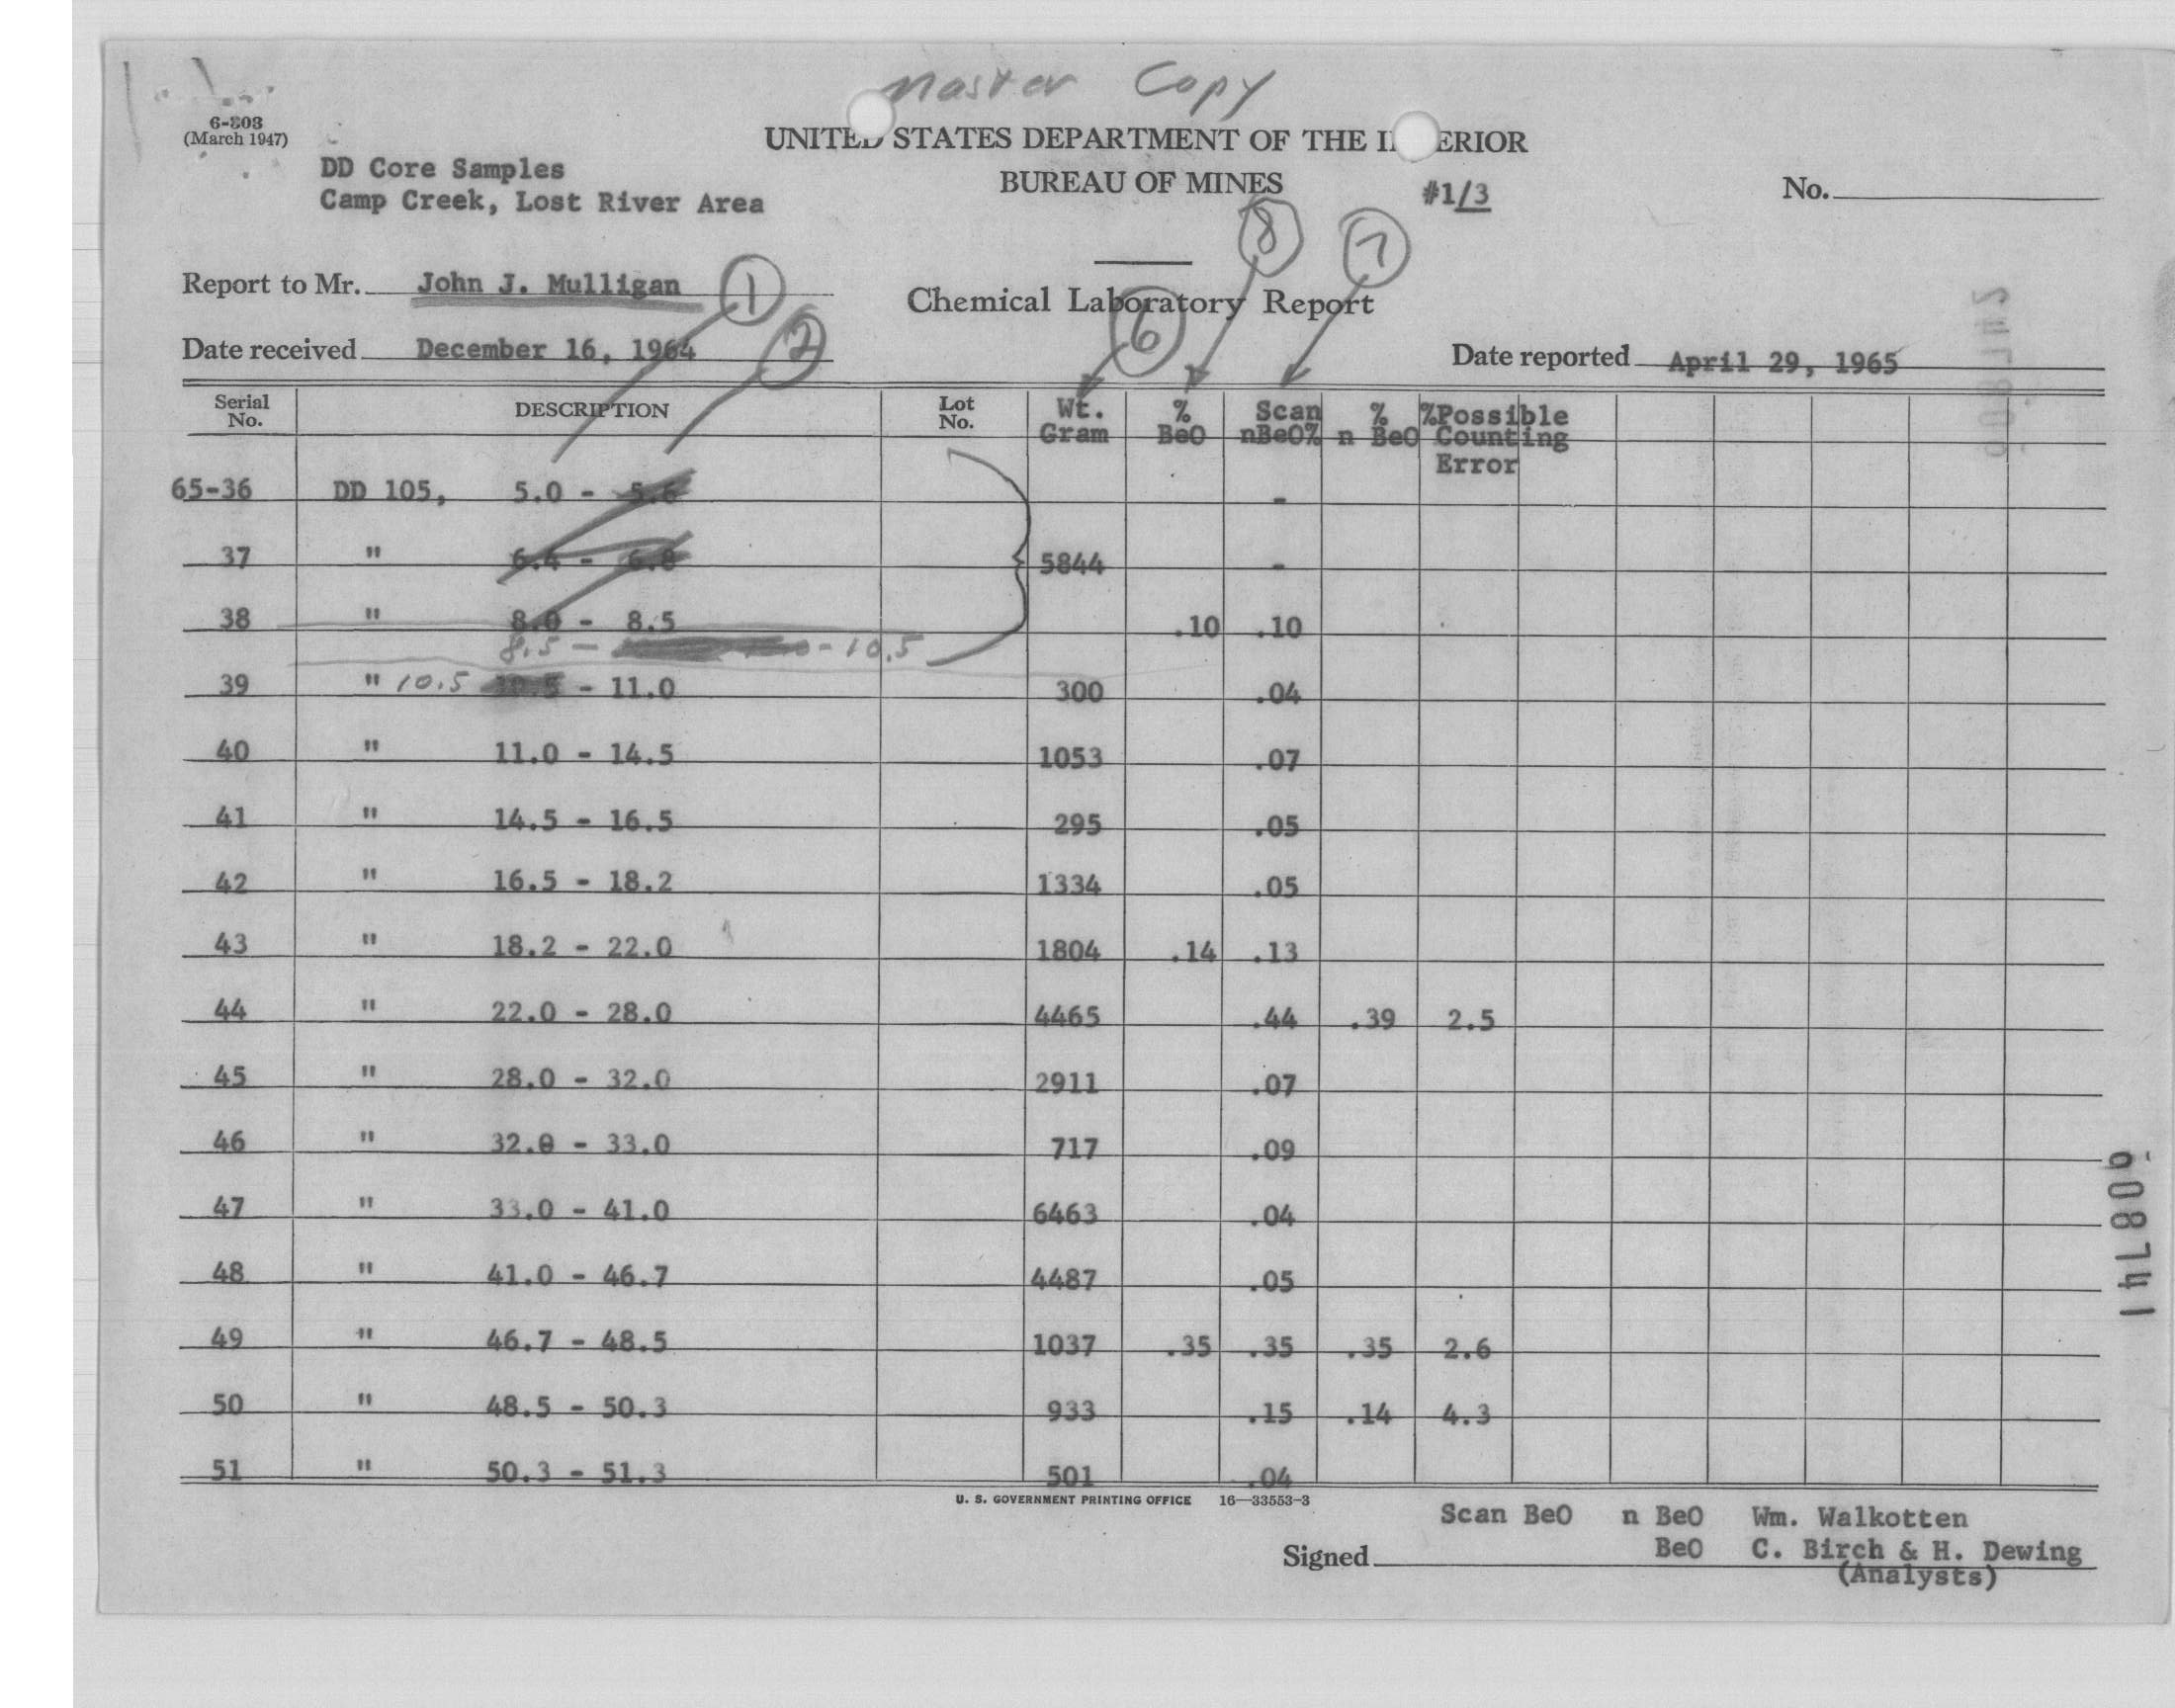 Master Copy
6-303
(March 1947)
UNITED STATES DEPARTMENT OF THE I ERIOR
DD Core Samples
BUREAU OF MINES
#1/3
No.
Camp Creek, Lost River Area
8 7
Report to Mr. John J. Mulligan 1
Chemical Laboratory Report
6
Date received December 16, 1964 2
Date reported April 29, 1965
Serial No. DESCRIPTION Lot No. Wt. Gram % BeO Scan nBeO% % n BeO %Possible Counting Error
65-36 DD 105, 5.0 - 5.6 -
37 " 6.4 - 6.8 5844 -
38 " 8.0 - 8.5 .10 .10
8.5 - - 10.5
39 " 10.5 10.5 - 11.0 300 .04
40 " 11.0 - 14.5 1053 .07
41 " 14.5 - 16.5 295 .05
42 " 16.5 - 18.2 1334 .05
43 " 18.2 - 22.0 1804 .14 .13
44 " 22.0 - 28.0 4465 .44 .39 2.5
45 " 28.0 - 32.0 2911 .07
46 " 32.0 - 33.0 717 .09
47 " 33.0 - 41.0 6463 .04
48 " 41.0 - 46.7 4487 .05
49 " 46.7 - 48.5 1037 .35 .35 .35 2.6
50 " 48.5 - 50.3 933 .15 .14 4.3
51 " 50.3 - 51.3 501 .04
U. S. GOVERNMENT PRINTING OFFICE 16—33553-3
Scan BeO n BeO Wm. Walkotten
Signed BeO C. Birch & H. Dewing
(Analysts)